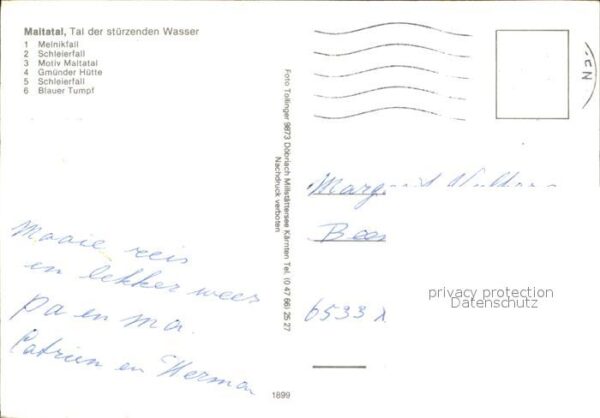 Maltatal, Tal der stürzenden Wasser
1 Melnikfall
2 Schleierfall
3 Motiv Maltatal
4 Gmünder Hütte
5 Schleierfall
6 Blauer Tumpf
Mooie reis
en lekker weer
pa en ma.
Catrien en Herman
Foto Tollinger 9873 Döbriach Millstättersee Kärnten Tel. (0 47 66) 25 27
Nachdruck verboten
1899
Bee
6533
privacy protection
Datenschutz